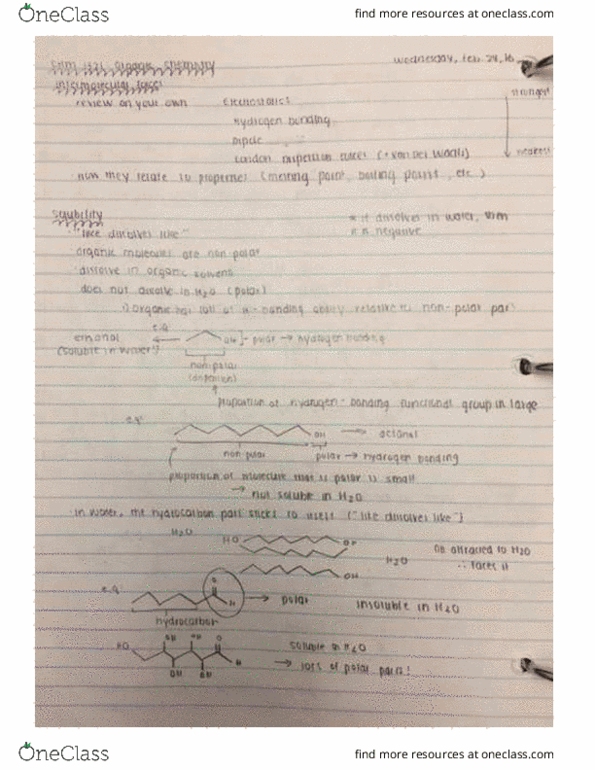 OneClass
find more resources at oneclass.com
Wednesday, Feb. 24, 16
organic chemistry
intermolecular forces
strongest
review on your own
electrostatic
hydrogen bonding
dipole
London dispersion forces (+ van der Waals)
weakest
· how they relate to properties (melting point, boiling point, etc.)
solubility
* if dissolves in water, then
is negative
· "like dissolves like"
· organic molecules are non polar
· dissolve in organic solvents
· does not dissolve in H2O (polar)
organic has lots of H-bonding ability relative to non-polar part
e.g.
ethanol
OH
polar → hydrogen bonding
(soluble in water)
non-polar
proportion of hydrogen-bonding functional group in large
e.g.
OH
→ octanol
non polar
polar → hydrogen bonding
proportion of molecule that is polar is small
→ not soluble in H2O
· in water, the hydrocarbon part sticks to itself ("like dissolves like")
H2O
HO
OH
H2O
OH attracted to H2O
∴ faces it
OH
e.g.
O
H
→ polar
insoluble in H2O
hydrocarbon
HO
OH
OH
O
H
OH
OH
soluble in H2O
→ lots of polar parts!
OneClass
find more resources at oneclass.com